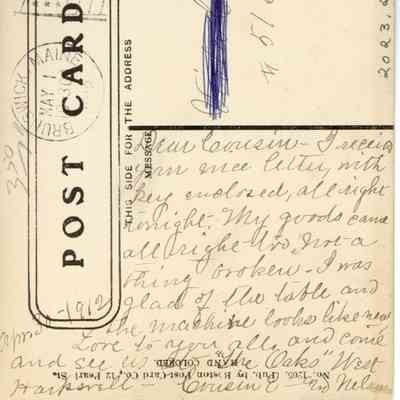 POST CARD
THIS SIDE FOR THE ADDRESS
MESSAGE
BRUNSWICK MAINE
MAY 1
350
2023.
Dear Cousin - I receiv
your nice letter, with
key enclosed, all right
tonight. My goods came
all right too, Not a
thing broken. I was
glad of the table and
the machine looks like new
Love to you all, and come
and see us "The Oaks" West
Harpswell - Cousin E Nelson
April - 1912
No. 1265 Pub. by Boston Post-Card Co., 12 Pearl St.
HAND COLORED